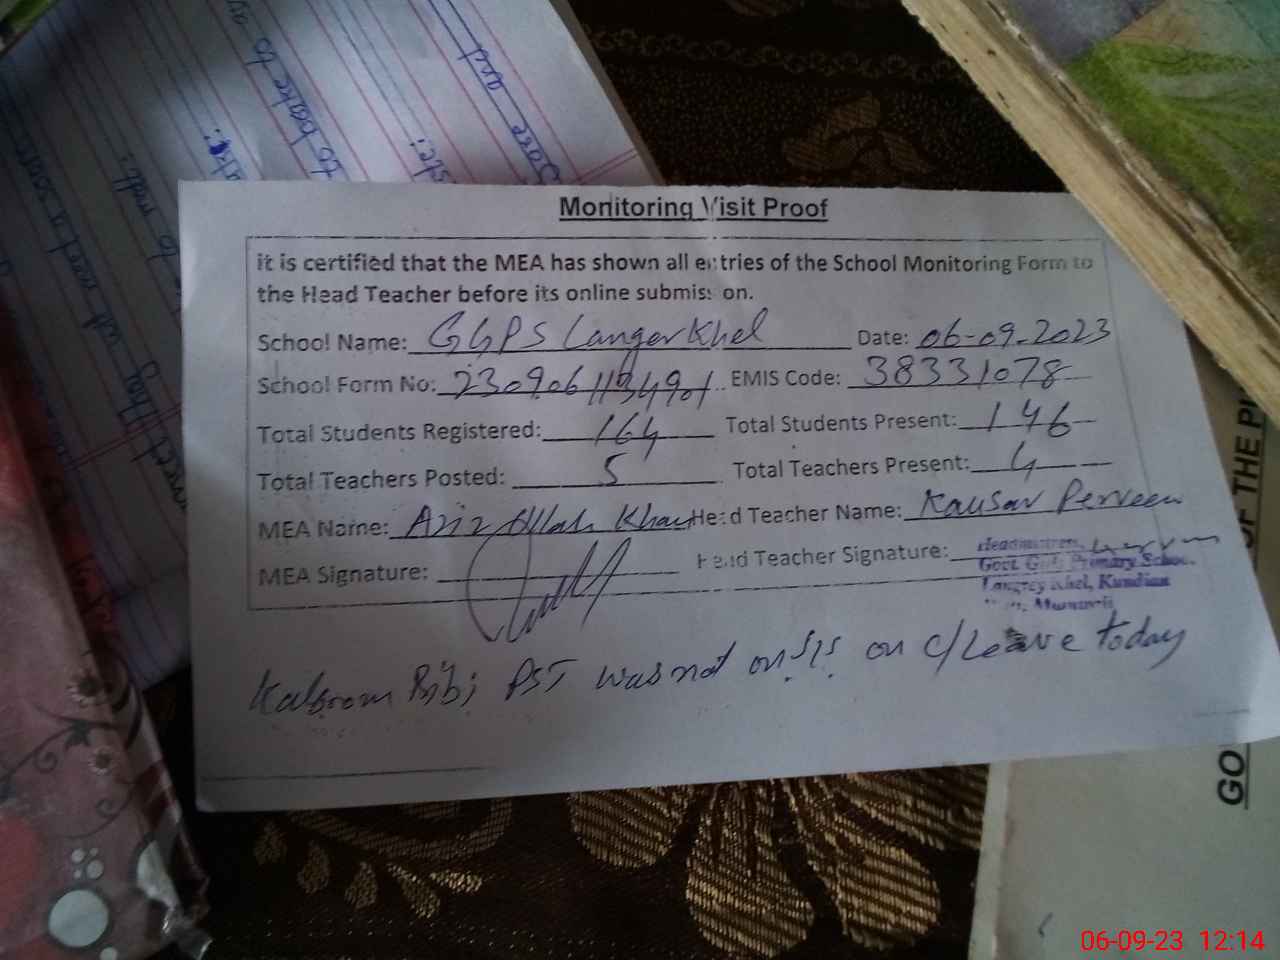 Monitoring Visit Proof
it is certified that the MEA has shown all entries of the School Monitoring Form to
the Head Teacher before its online submission.
School Name: GGPS Langer Khel Date: 06-09-2023
School Form No: EMIS Code: 38331078
Total Students Registered: 164 Total Students Present: 146
Total Teachers Posted: 5 Total Teachers Present: 4
MEA Name: Aziz Ullah Khan Head Teacher Name: Kausar Perveen
MEA Signature: Head Teacher Signature:
Headmistress,
Govt. Girls Primary School
Langrey Khel, Kundian
PST was not on c/Leave today
OF THE
GO
06-09-23 12:14